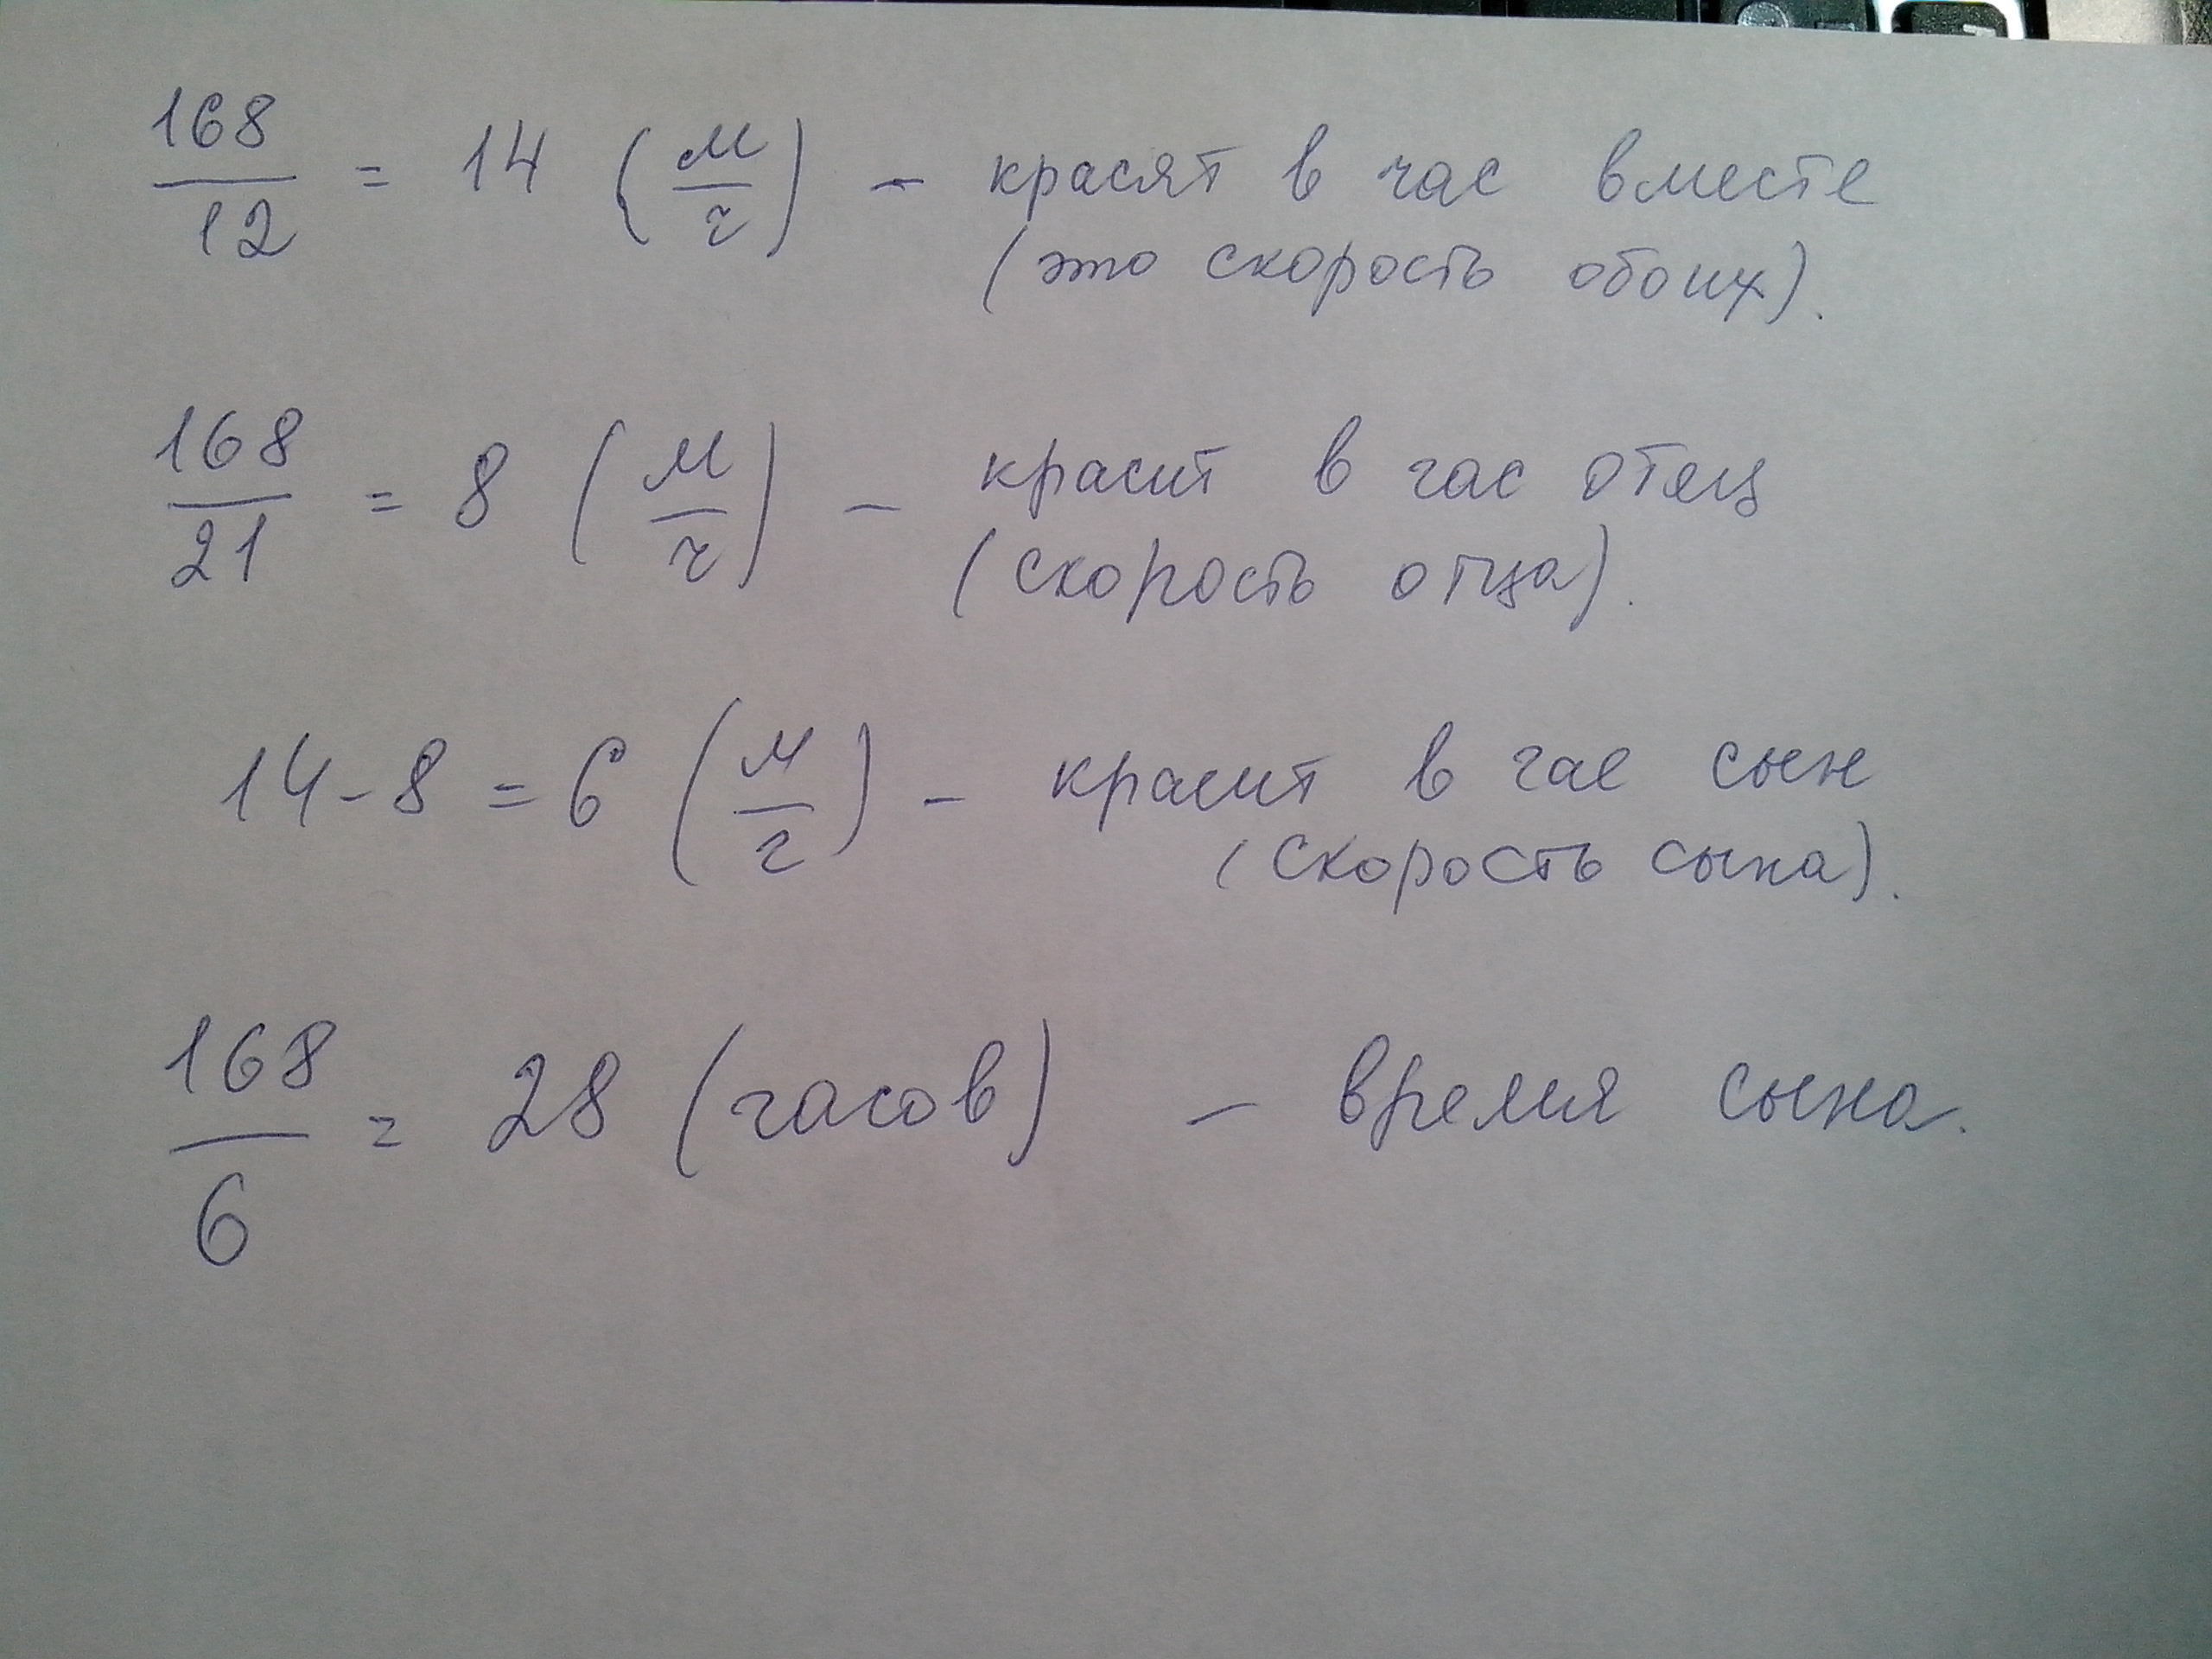 168/12 = 14 (м/ч) – красят в час вместе
(это скорость обоих).
168/21 = 8 (м/ч) – красит в час отец
(скорость отца).
14 - 8 = 6 (м/ч) – красит в час сын
(скорость сына).
168/6 = 28 (часов) – время сына.